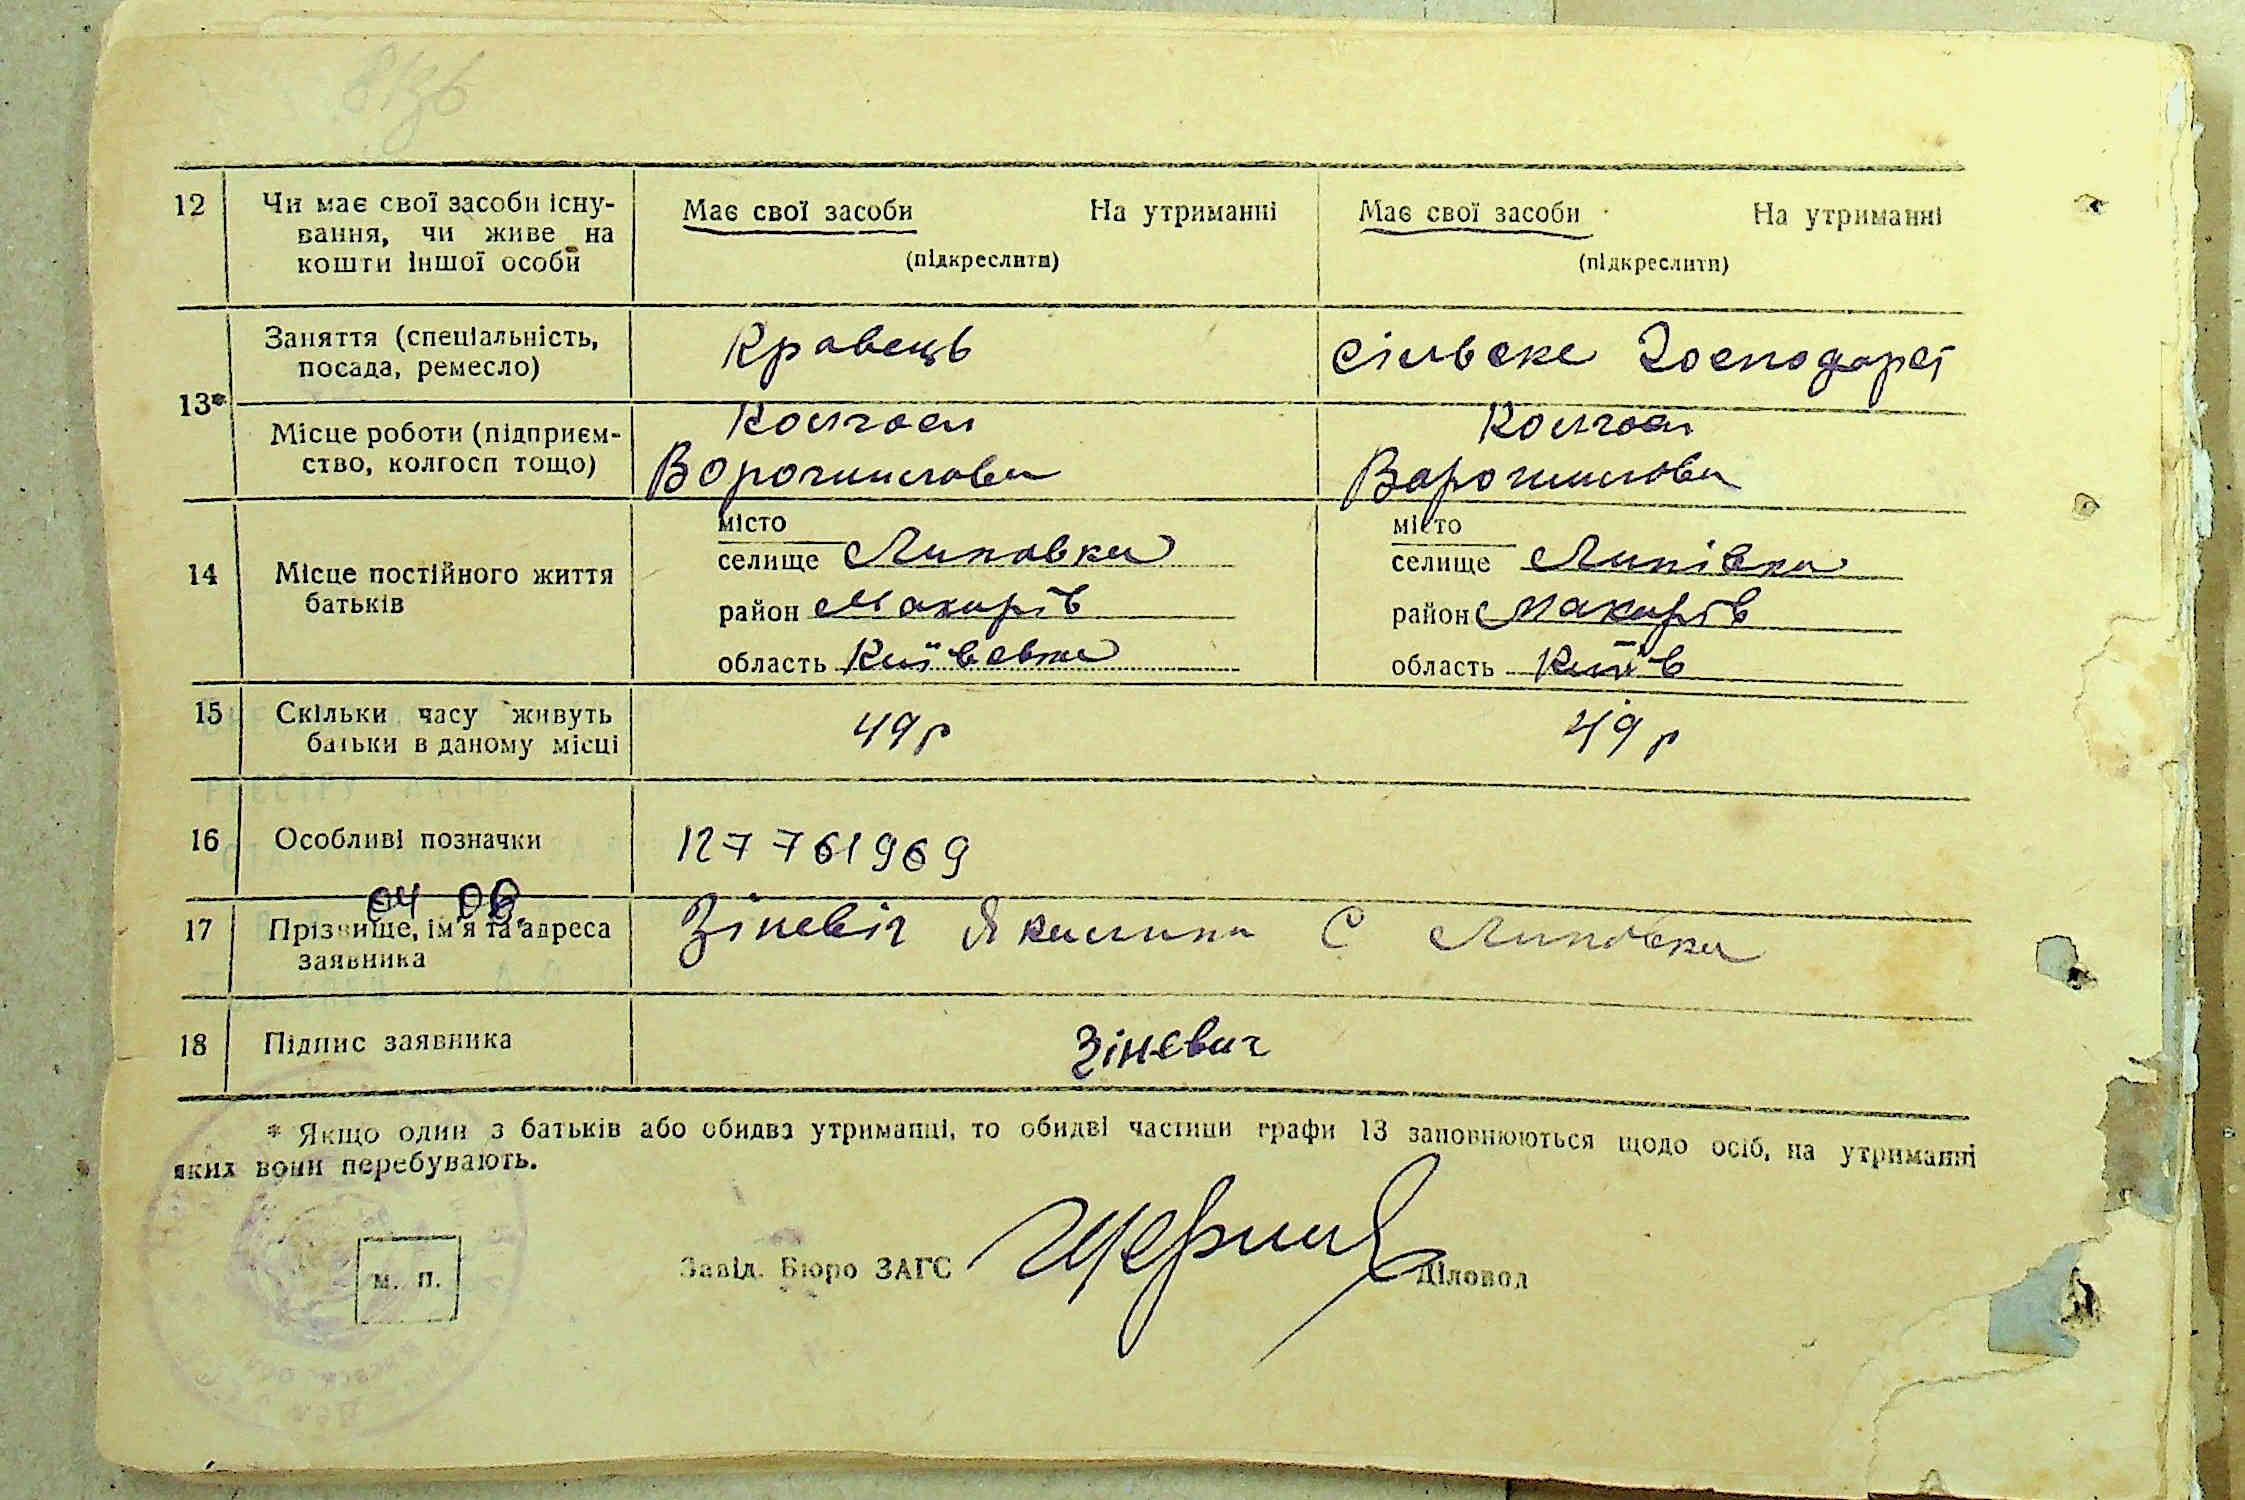 12 Чи має свої засоби існу- Має свої засоби На утриманні Має свої засоби На утриманні
вання, чи живе на
кошти іншої особи (підкреслити) (підкреслити)
Заняття (спеціальність, Кравець Сільске Господарст
посада, ремесло)
13*
Колгосп Колгосп
Місце роботи (підприєм-
ство, колгосп тощо) Ворошилова Ворошилова
місто місто
селище Липовка селище Липівка
14 Місце постійного життя
батьків район Макарів район Макарів
область Київська область Київ
15 Скільки часу живуть 49 р 49 р
батьки в даному місці
16 Особливі позначки 127761969
04 06
17 Прізвище, ім'я та адреса Зіневіч Якилина С Липовка
заявника
18 Підпис заявника Зінєвич
* Якщо один з батьків або обидва утриманці, то обидві частини графи 13 заповнюються щодо осіб, на утриманні
яких вони перебувають.
м. п.
Завід. Бюро ЗАГС Діловод